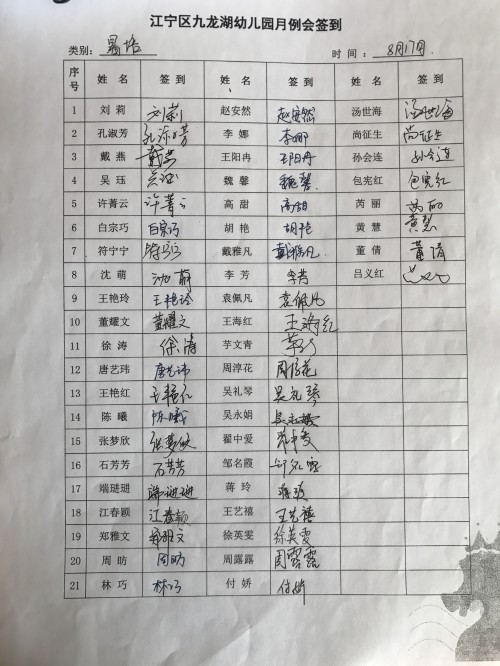 江宁区九龙湖幼儿园月例会签到
类别: 暑培 时间: 8月17月.
序号 姓名 签到 姓名 签到 姓名 签到
1 刘莉 刘莉 赵安然 赵安然 汤世海 汤世海
2 孔淑芳 孔淑芳 李娜 李娜 尚征生 尚征生
3 戴燕 戴燕 王阳冉 王阳冉 孙会连 孙会连
4 吴珏 吴珏 魏馨 魏馨 包宪红 包宪红
5 许菁云 许菁云 高甜 高甜 芮丽 芮丽
6 白宗巧 白宗巧 胡艳 胡艳 黄慧 黄慧
7 符宁宁 符宁宁 戴雅凡 戴雅凡 董倩 董倩
8 沈萌 沈萌 李芳 李芳 吕义红
9 王艳玲 王艳玲 袁佩凡 袁佩凡
10 董耀文 董耀文 王海红 王海红
11 徐涛 徐涛 芋文青
12 唐艺玮 唐艺玮 周淳花 周淳花
13 王艳红 王艳红 吴礼琴 吴礼琴
14 陈曦 陈曦 吴永娟
15 张梦欣 张梦欣 翟中爱
16 石芳芳 石芳芳 邹名霞 邹名霞
17 端琎琎 端琎琎 蒋玲 蒋玲
18 江春颐 江春颐 王艺禧 王艺禧
19 郑雅文 郑雅文 徐英雯 徐英雯
20 周昉 周昉 周露露 周露露
21 林巧 林巧 付娇 付娇